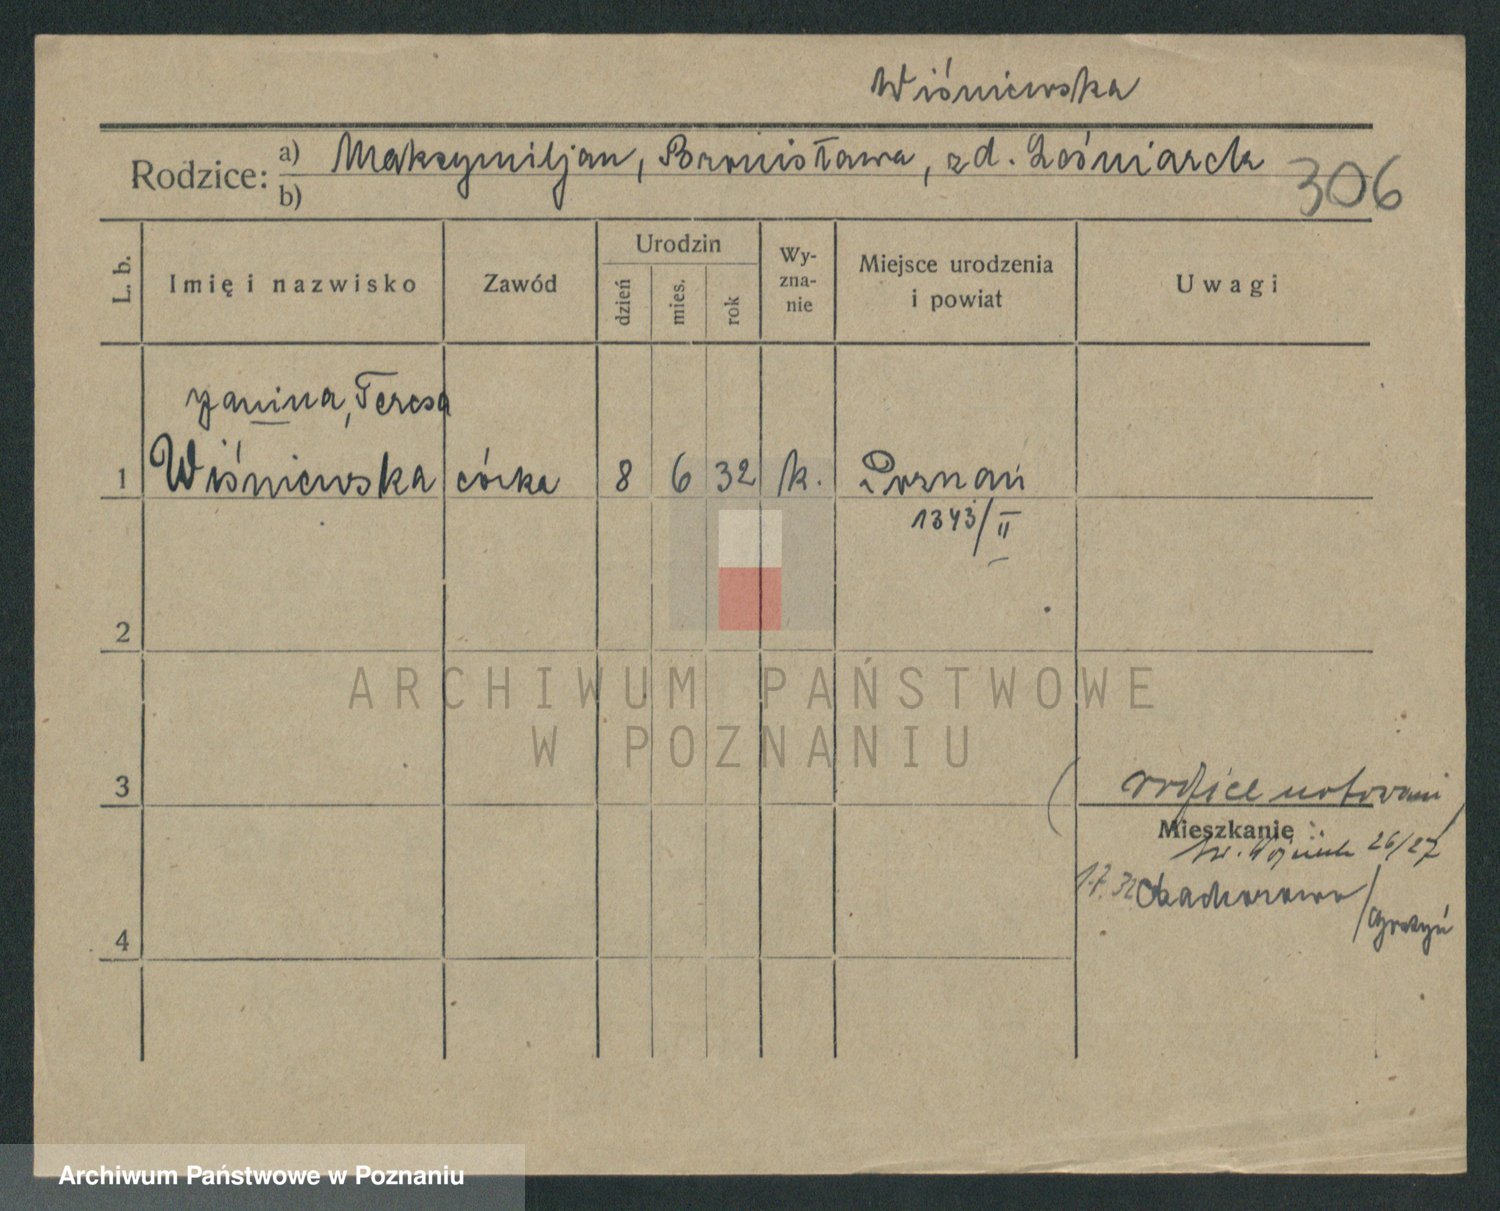 Wiśniewska
Rodzice: a) Maksymiljan, Bronisława, zd. Leśniarek
b)
306
L. b.
Imię i nazwisko
Zawód
Urodzin
dzień
mies.
rok
Wy-
zna-
nie
Miejsce urodzenia
i powiat
Uwagi
Janina, Teresa
1 Wiśniewska córka 8 6 32 k. Poznań
1343/II
2
ARCHIWUM PAŃSTWOWE
W POZNANIU
3
rodzice notowani
Mieszkanie:
św. Wojciech 26/27
4
Archiwum Państwowe w Poznaniu